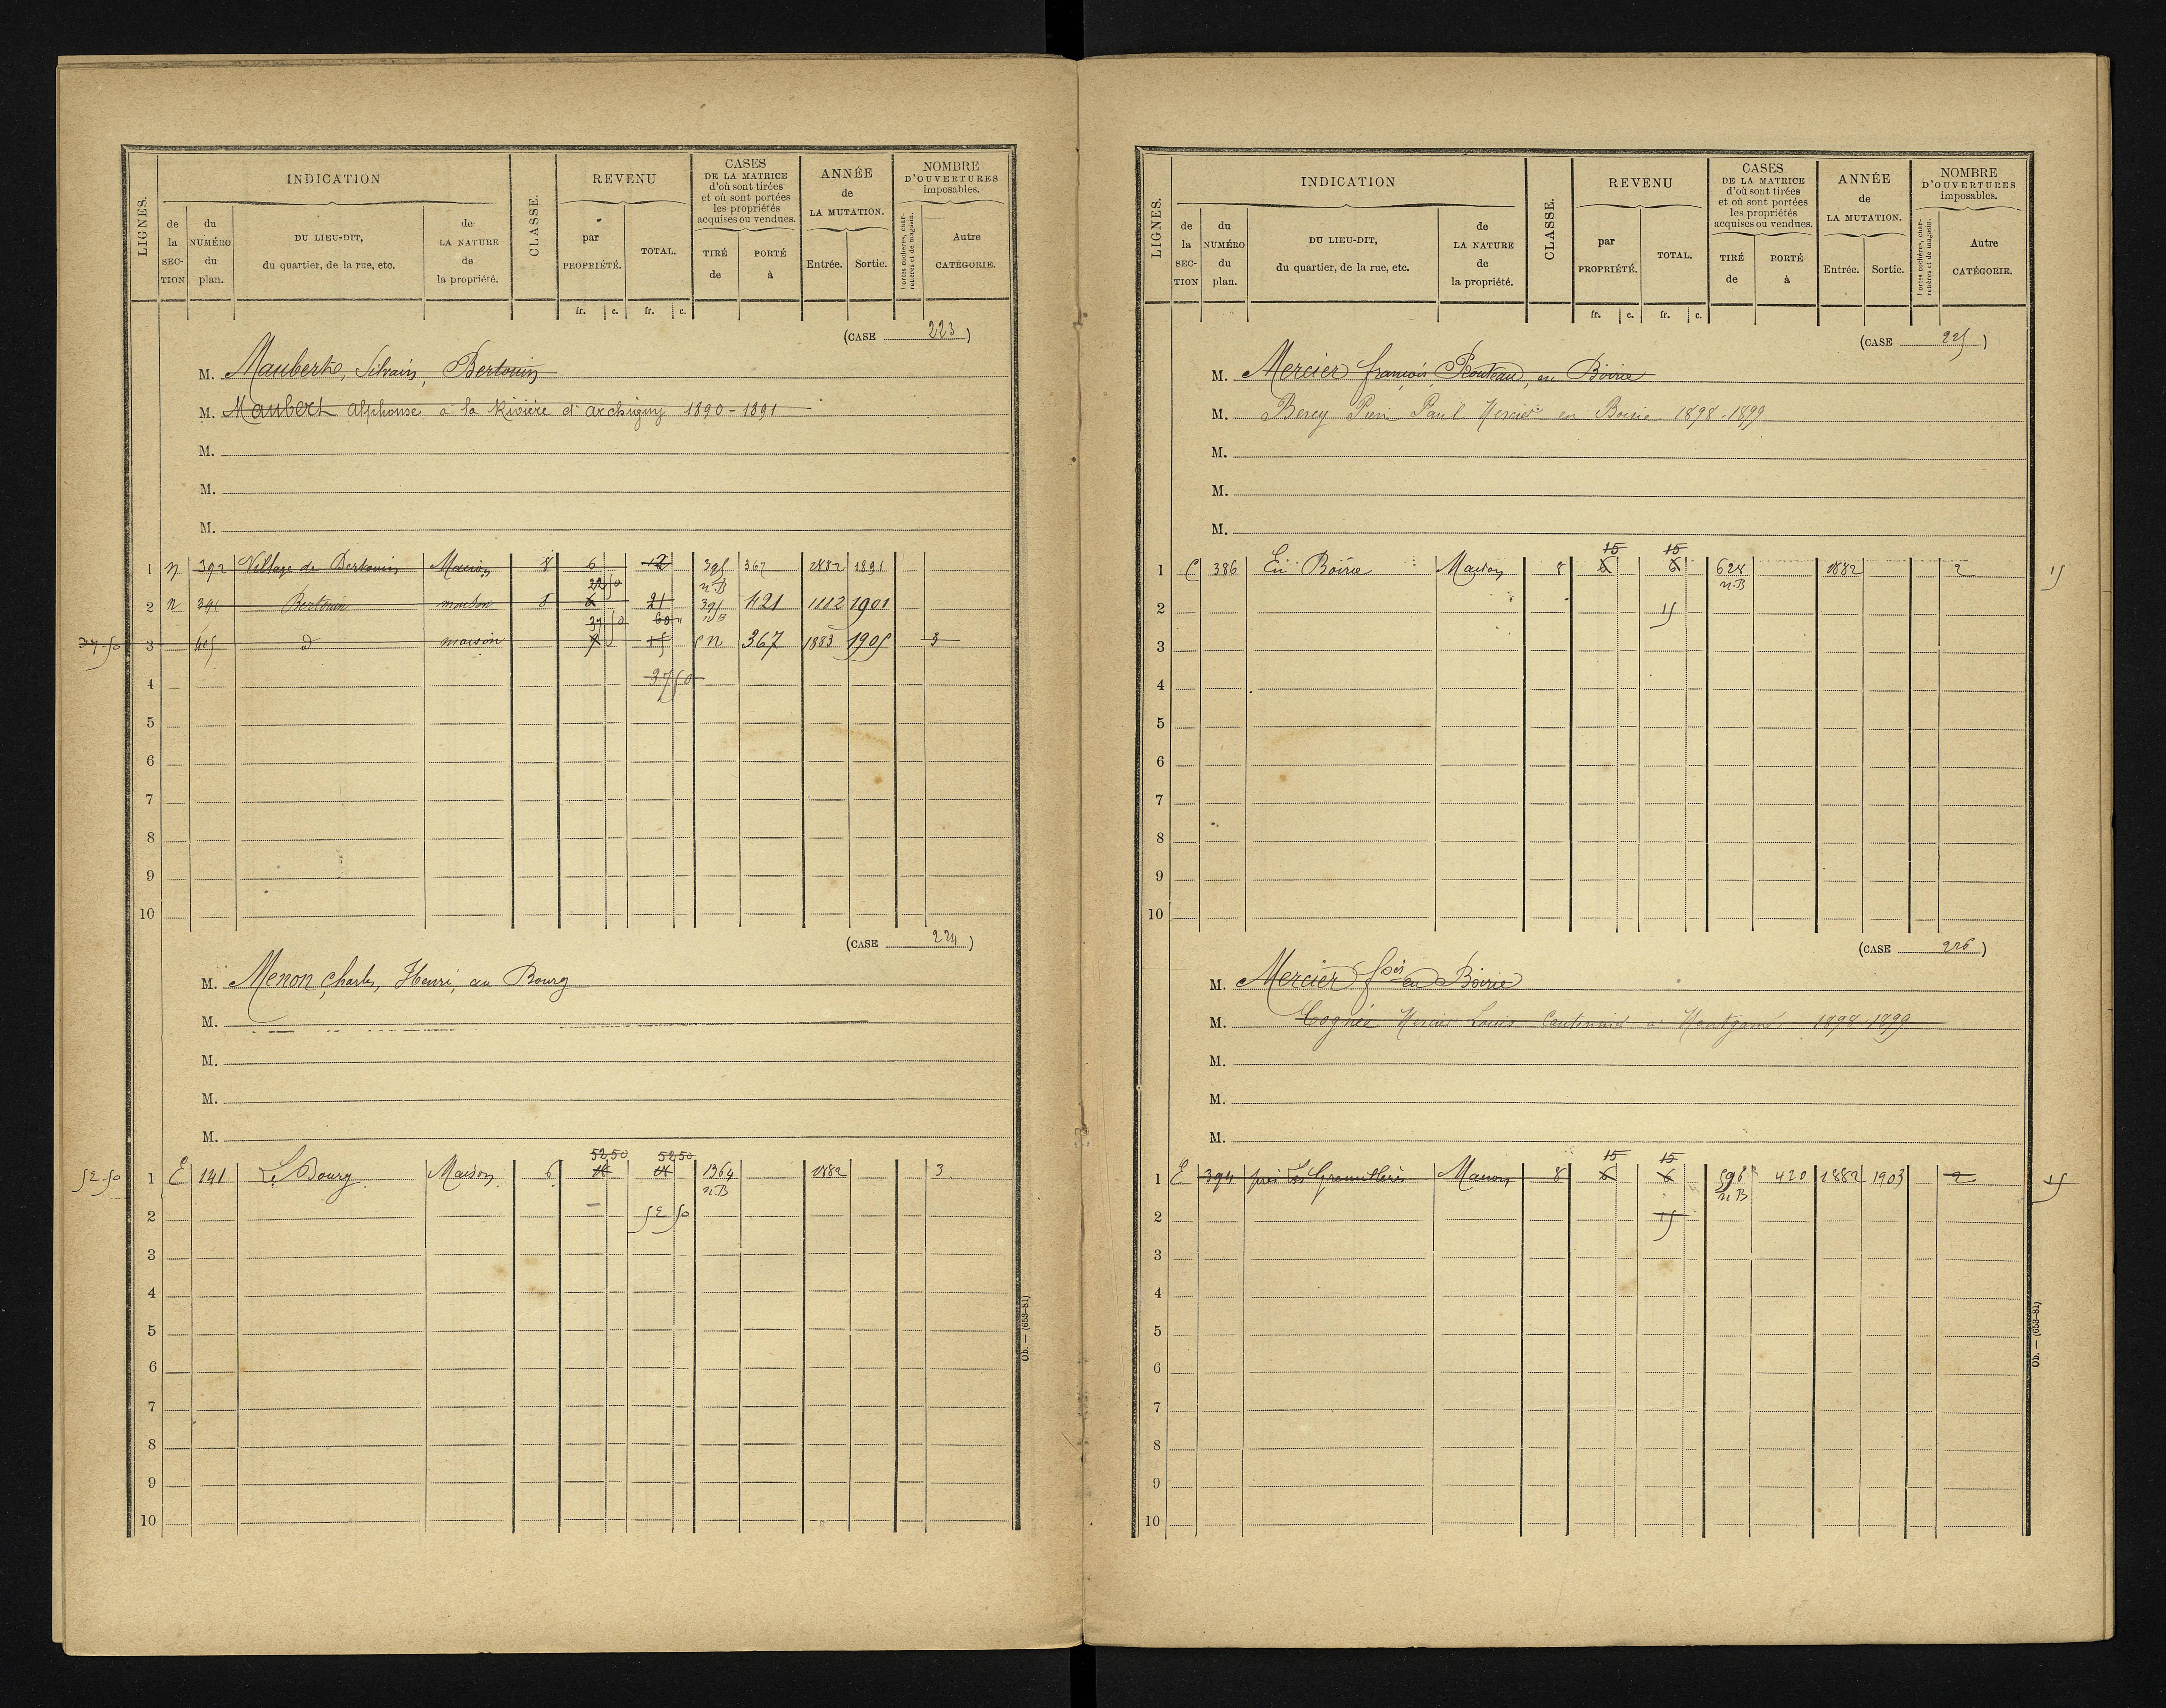 LIGNES.
INDICATION
de la SECTION
du NUMÉRO du plan.
DU LIEU-DIT, du quartier, de la rue, etc.
de LA NATURE de la propriété.
CLASSE.
REVENU
par PROPRIÉTÉ.
TOTAL.
fr. c. fr. c.
CASES DE LA MATRICE d'où sont tirées et où sont portées les propriétés acquises ou vendues.
TIRÉ de
PORTÉ à
ANNÉE de LA MUTATION.
Entrée. Sortie.
NOMBRE D'OUVERTURES imposables.
Portes cochères, charretières et de magasin.
Autre CATÉGORIE.
(CASE 223)
M. Mauberte, Silvain, Bertouin
M. Maubert alphonse à la Rivière d'archigny 1890-1891
M.
M.
M.
1 n 392 Village de Bertouin Maison 8 6 12 395 n.B 367 1882 1891
2 n 391 Bertouin maison 8 22 50 6 21 395 n B 421 1112 1901
37.50 3 405 d maison 37 50 60 15 n 367 1883 1905 3
4 37 50
5
6
7
8
9
10
(CASE 224)
M. Menon Charles, Henri, au Bourg
M.
M.
M.
M.
52.50 1 E 141 Le Bourg Maison 6 52.50 52.50 1364 n.B 1882 3
2 52 50
3
4
5
6
7
8
9
10
Ob. — (653-81)
LIGNES.
INDICATION
de la SECTION
du NUMÉRO du plan.
DU LIEU-DIT, du quartier, de la rue, etc.
de LA NATURE de la propriété.
CLASSE.
REVENU
par PROPRIÉTÉ.
TOTAL.
fr. c. fr. c.
CASES DE LA MATRICE d'où sont tirées et où sont portées les propriétés acquises ou vendues.
TIRÉ de
PORTÉ à
ANNÉE de LA MUTATION.
Entrée. Sortie.
NOMBRE D'OUVERTURES imposables.
Portes cochères, charretières et de magasin.
Autre CATÉGORIE.
(CASE 225)
M. Mercier françois, Routeau, en Boirie
M. Bercy Paul Mercier en Boirie 1898-1899
M.
M.
M.
1 E 386 En Boirie Maison 8 15 6 15 6 628 n.B 1882 2 15
2 15
3
4
5
6
7
8
9
10
(CASE 226)
M. Mercier fois en Boirie
M. Cognée Mercier Louis Cantonnier à Montgamé 1898-1899
M.
M.
M.
1 E 394 près Les Maison 8 15 6 15 6 596 n.B 420 1882 1903 2 15
2 15
3
4
5
6
7
8
9
10
Ob. — (653-81)